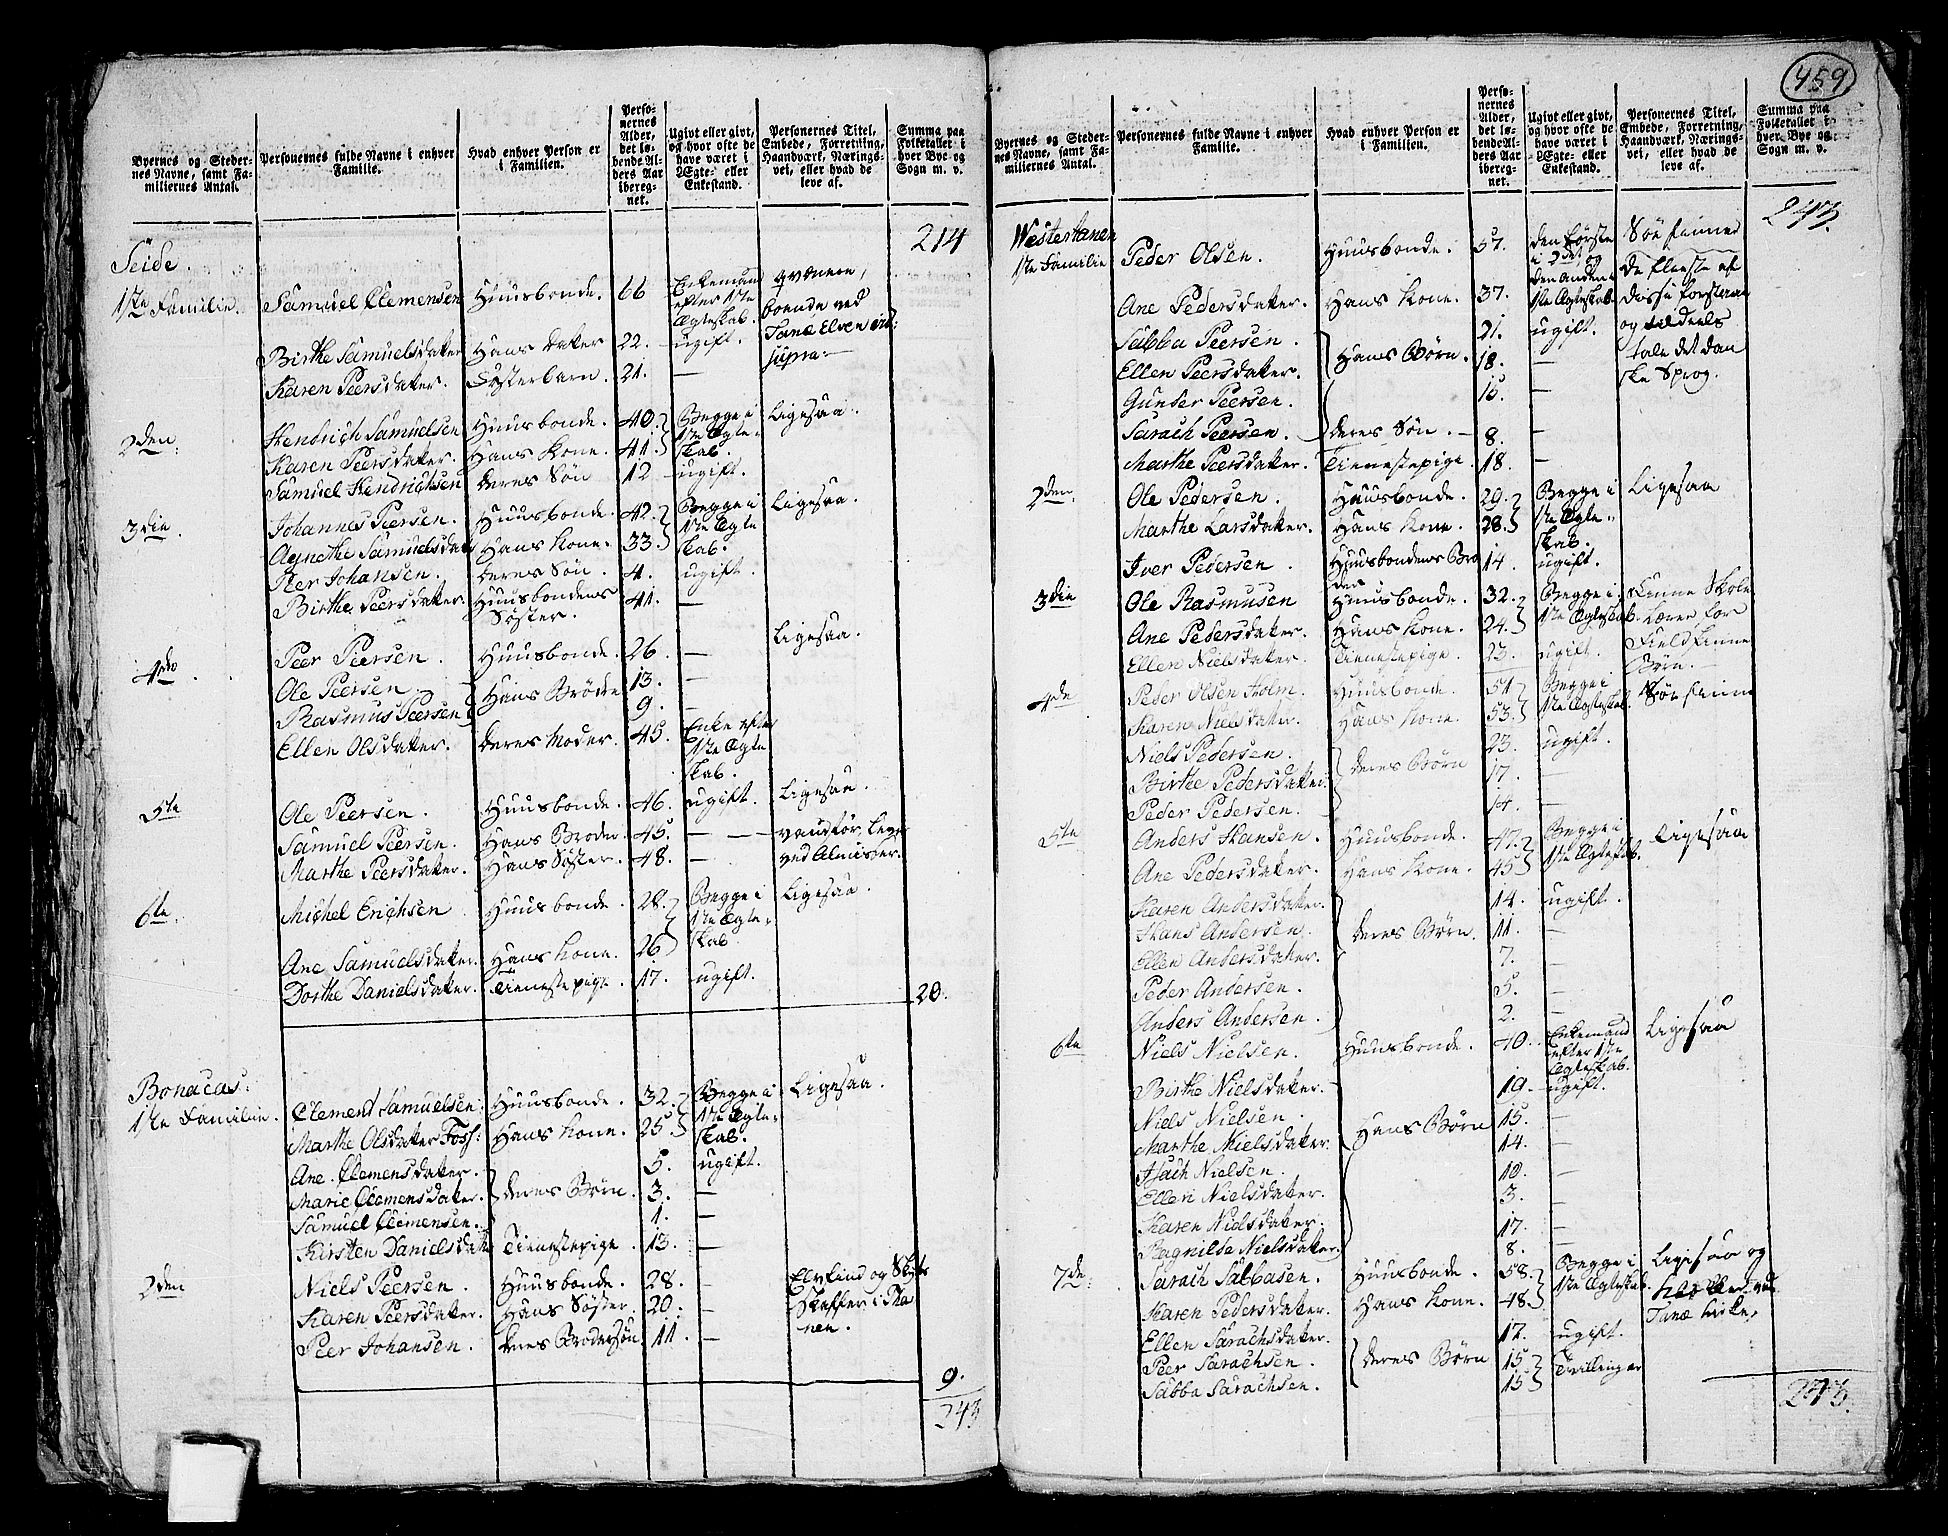 459
Byernes og Steder-
nes Navne, samt Fa-
miliernes Antal.
Personernes fulde Navne i enhver
Familie.
Hvad enhver Person er
i Familien.
Perso-
nernes
Alder,
det lø-
bende Al-
ders Aar
ibereg-
net.
Ugivt eller givt,
og hvor ofte de
have været i
Ægte- eller
Enkestand.
Personernes Titel,
Embede, Forretning,
Haandværk, Nærings-
vei, eller hvad de
leve af.
Summa paa
Folketallet i
hver Bye og
Sogn m. v.
214
Seide.
1ste Familie. Samuel Clemensen Huusbonde. 66 Enkemand efter 1ste Ægteskab. qvæner, boende ved Tana Elven
Birthe Samuelsdatter Hans datter 22. ugift.
Karen Peersdatter. Søsterbarn. 21. —
2den Hendrich Samuelsen Huusbonde. 40. Begge i 1ste Ægteskab. Ligesaa.
Karen Peersdatter. Hans Kone. 41.
Samuel Hendrichsen deres Søn 12 ugift.
3die. Johannes Peersen. Huusbonde. 42. Begge i 1ste Ægteskab. Ligesaa.
Agnethe Samuelsdatt Hans Kone. 33.
Peer Johansen. deres Søn. 4. ugift.
Birthe Peersdatter. Huusbondens Søster. 41. —
4de Peer Peersen. Huusbonde. 26. — Ligesaa.
Ole Peersen. Hans Brødre 13. —
Rasmus Peersen 9. —
Ellen Olsdatter. deres Moder. 45. Enke efter 1ste Ægteskab.
5te Ole Peersen. Huusbonde. 46. ugift. Ligesaa.
Samuel Peersen. Hans Broder 45. — vanfør, lever
Marthe Peersdatter. Hans Søster. 48. — ved Almisser.
6te. Michel Erichsen Huusbonde. 28. Begge i 1ste Ægteskab Ligesaa.
Ane Samuelsdatter. Hans Kone. 26
Dorthe Danielsdatter. Tienestepige. 17. ugift.
20.
Bonacas.
1ste Familie. Clement Samuelsen. Huusbonde. 32. Begge i 1ste Ægteskab. Ligesaa.
Marthe Olsdatter Foss: Hans Kone. 25.
Ane Clemensdatter. deres Børn. 5. ugift.
Marie Clemensdatter. 3. —
Samuel Clemensen. 1. —
Kirsten Danielsdatt Tienestepige. 13. —
2den Niels Peersen. Huusbonde. 28. — Elvfind og Skyds
Karen Peersdatter. Hans Søster. 20. — skaffer i Ta
Peer Johansen. deres Brodersøn. 11. — nen.
9.
243
Byernes og Steder-
nes Navne, samt Fa-
miliernes Antal.
Personernes fulde Navne i enhver
Familie.
Hvad enhver Person er
i Familien.
Perso-
nernes
Alder,
det lø-
bende Al-
ders Aar
ibereg-
net.
Ugivt eller givt,
og hvor ofte de
have været i
Ægte- eller
Enkestand.
Personernes Titel,
Embede, Forretning,
Haandværk, Nærings-
vei, eller hvad de
leve af.
Summa paa
Folketallet i
hver Bye og
Sogn m. v.
243.
Westertanen
1ste Familie Peder Olsen. Huusbonde. 57. den første i 2det og Søe finner
Ane Pedersdatter. Hans Kone. 37. den anden i 1ste Ægteskab. De fleeste af disse forstaae
Sabba Peersen. Hans Børn. 21. ugift. og tildeels
Ellen Peersdatter. 18. — tale det dan
Gunder Peersen. 15. — ske Sprog.
Sarach Peersen. deres Søn. 8. —
Marthe Peersdatter. Tienestepige. 18. —
2den. Ole Pedersen. Huusbonde. 29. Begge i 1ste Ægteskab. Ligesaa
Marthe Larsdatter. Hans Kone. 28.
Iver Pedersen. Huusbondens Broder 14. ugift.
3die Ole Rasmusen Huusbonde. 32. Begge i 1ste Ægteskab. Finne Skole
Ane Pedersdatter. Hans Kone. 24. Lærer for
Ellen Nielsdatter. Tienestepige. 23. ugift. Field Finne Børn.
4de Peder Olsen Holm. Huusbonde. 51 Begge i 1ste Ægteskab. Søe finne
Karen Nielsdatter. Hans Kone. 53.
Niels Pedersen. deres Børn 23. ugift.
Birthe Pedersdatter. 17. —
Peder Pedersen. 14. —
5te Anders Hansen. Huusbonde. 47. Begge i 1ste Ægteskab. Ligesaa
Ane Pedersdatter. Hans Kone. 45
Karen Andersdatter. deres Børn. 14. ugift.
Hans Andersen. 11. —
Ellen Andersdatter. 7. —
Peder Andersen. 5. —
Anders Andersen. 2. —
6te Niels Nielsen. Huusbonde. 40. Enkemand efter 1ste Ægteskab. Ligesaa
Birthe Nielsdatter. Hans Børn 19. ugift.
Niels Nielsen. 15. —
Marthe Nielsdatter. 14. —
Isach Nielsen. 10. —
Ellen Nielsdatter. 3. —
Karen Nielsdatter. 17. —
Ragnilde Nielsdatter. 8. —
7de. Sarach Sabbasen. Huusbonde. 58. Begge i 1ste Ægteskab. Ligesaa og
Karen Pedersdatter. Hans Kone. 48. ved Tanæ Kirke.
Ellen Sarachsdatter. deres Børn 17. ugift.
Peer Sarachsen. 15. Tvillinger
Sabba Sarachsen. 15
243.